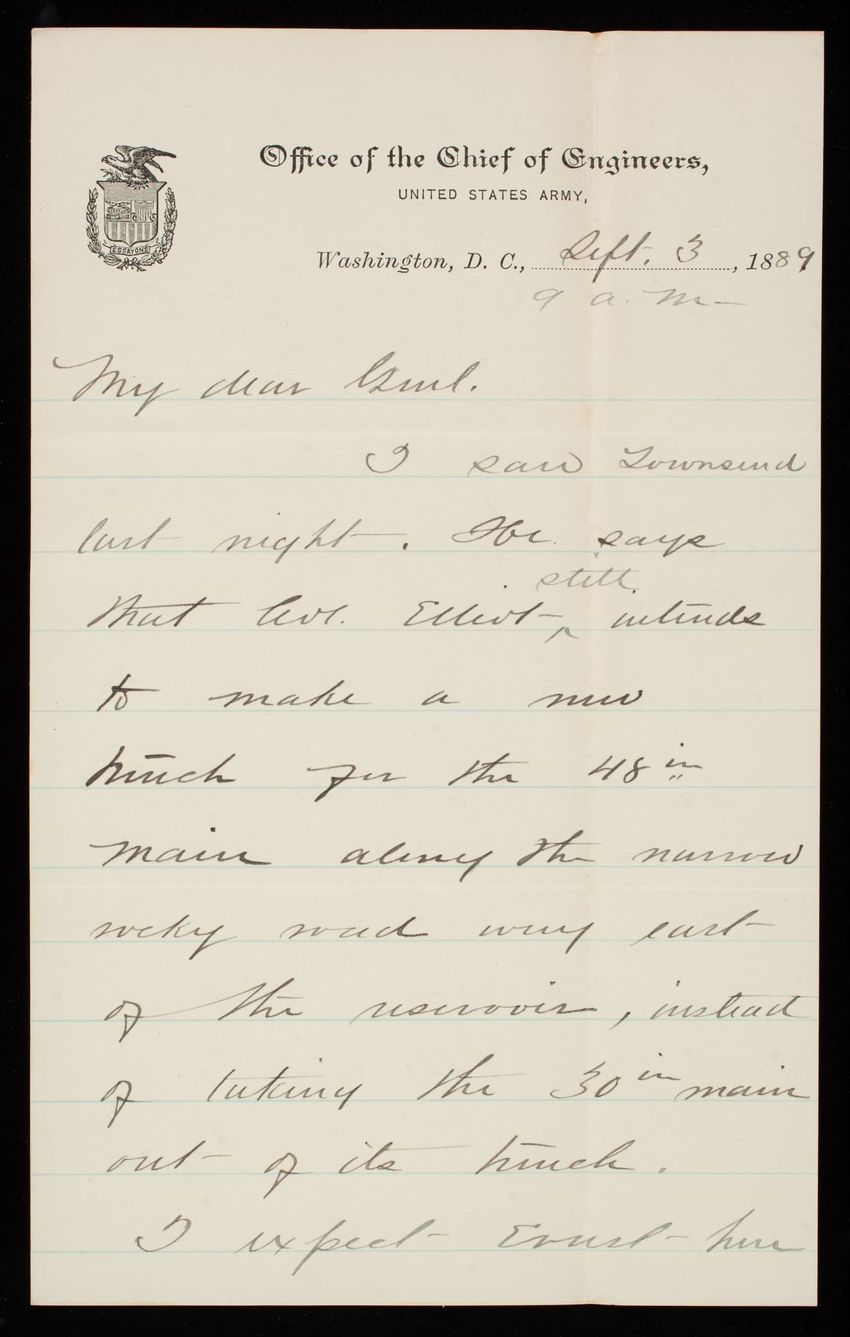 ESSAYONS
Office of the Chief of Engineers,
UNITED STATES ARMY,
Washington, D. C., Sept. 3, 1889
9 a. m-
My dear Genl.
I saw Townsend
last night. He says
that Col. Elliot ^ still intends
to make a new
trench for the 48 in
main along the narrow
rocky road way east
of the reservoir, instead
of taking the 30 in main
out of its trench.
I expect Ernst here